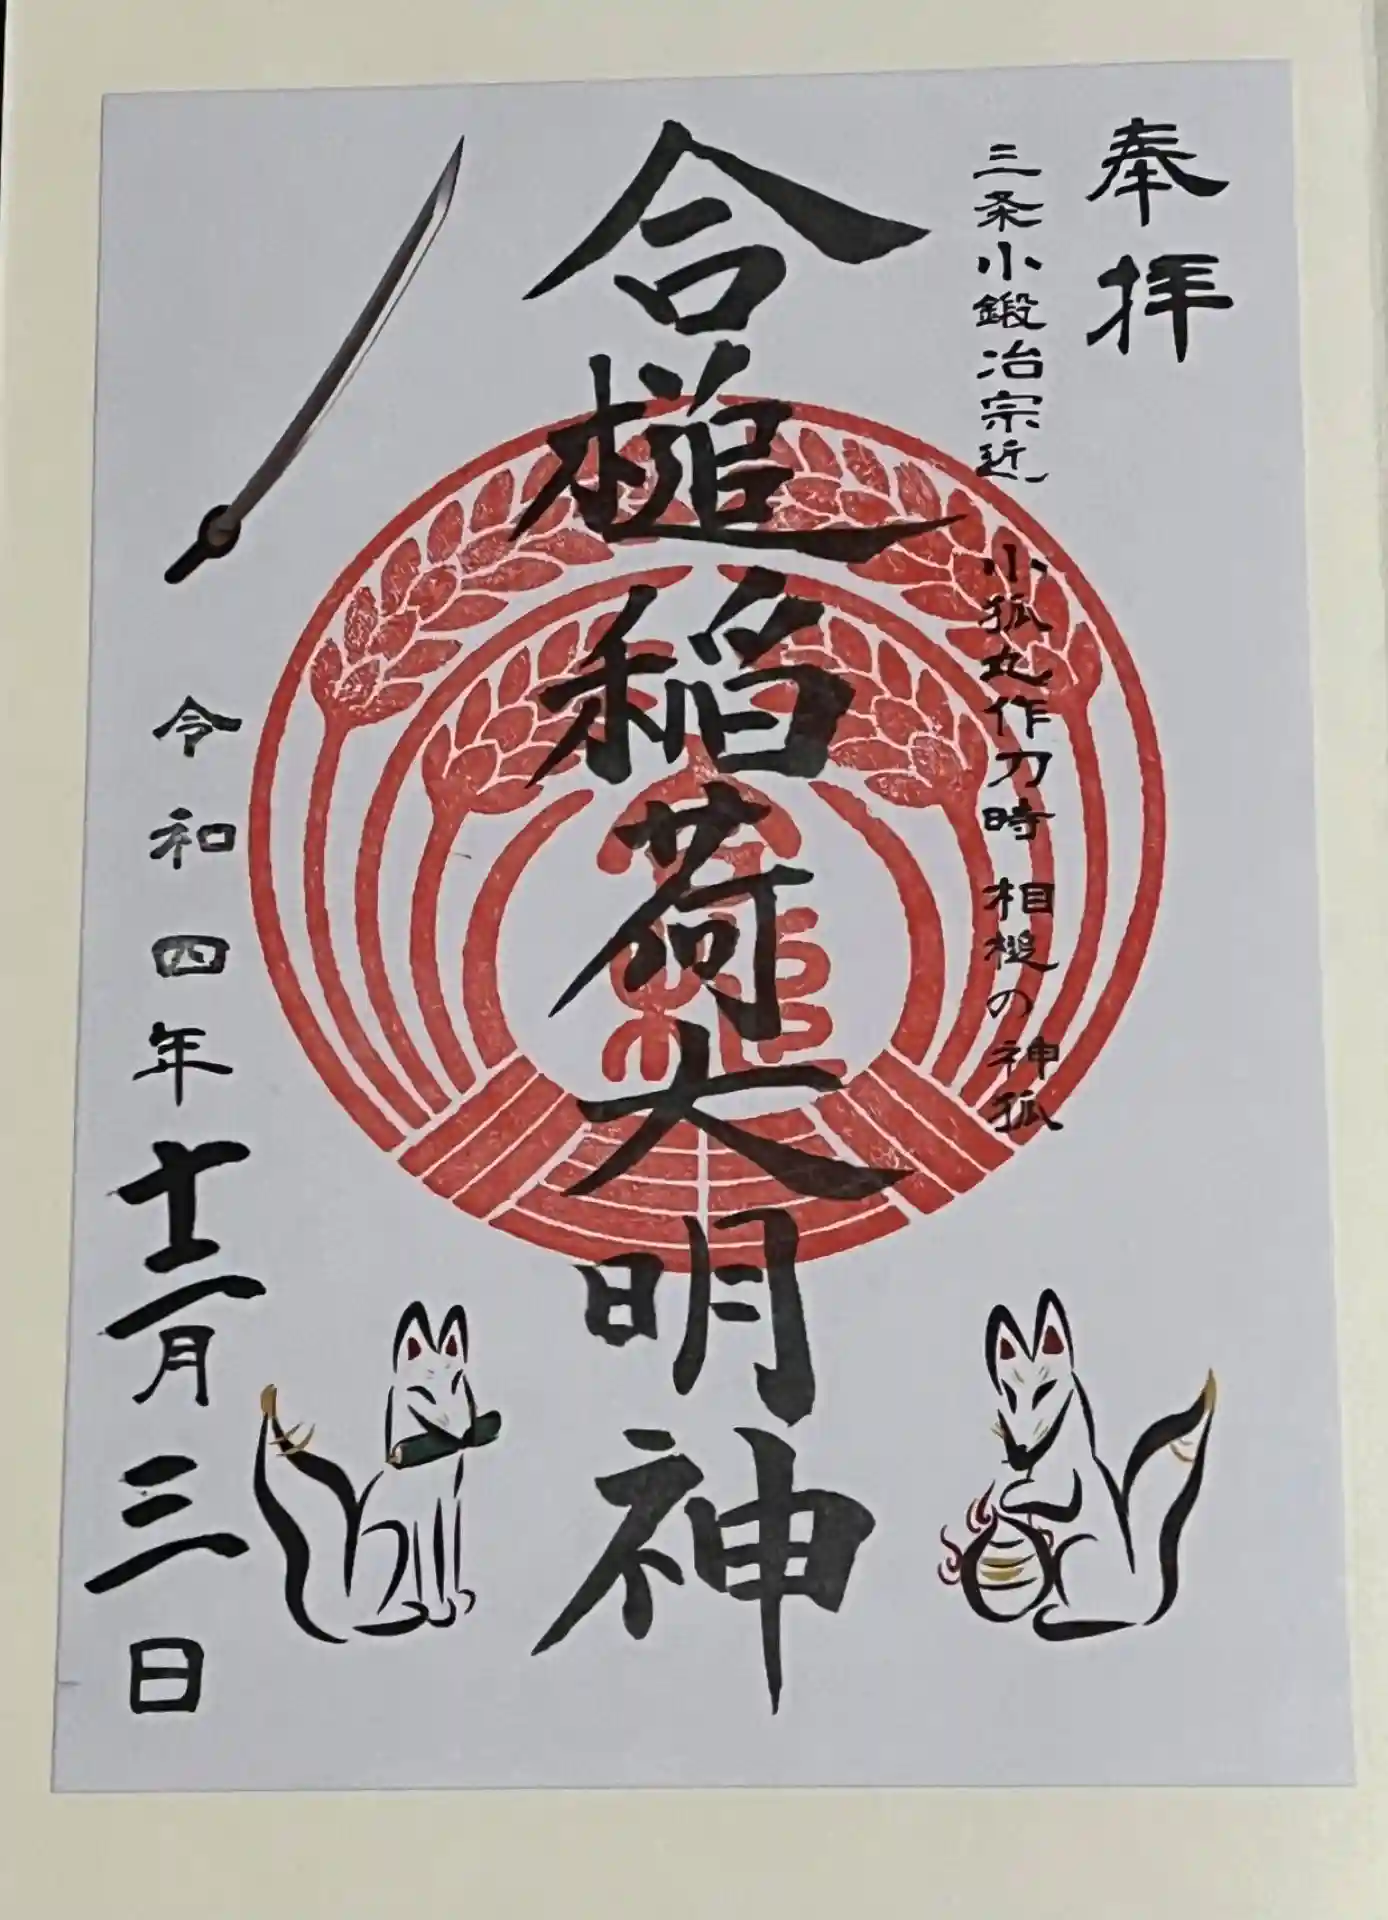 奉拝
三条小鍛冶宗近 小狐丸作刀時 相槌の神狐
合槌稲荷大明神
令和四年十二月三日